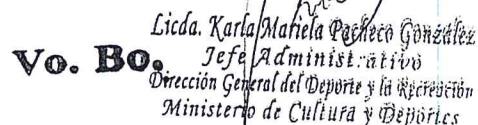 Licda. Karla Mariela Pacheco González
Vo. Bo. Jefe Administrativo
Dirección General del Deporte y la Recreación
Ministerio de Cultura y Deportes